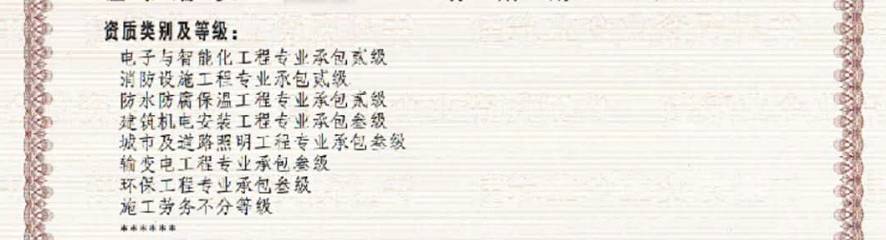 资质类别及等级：
电子与智能化工程专业承包贰级
消防设施工程专业承包贰级
防水防腐保温工程专业承包贰级
建筑机电安装工程专业承包叁级
城市及道路照明工程专业承包叁级
输变电工程专业承包叁级
环保工程专业承包叁级
施工劳务不分等级
******